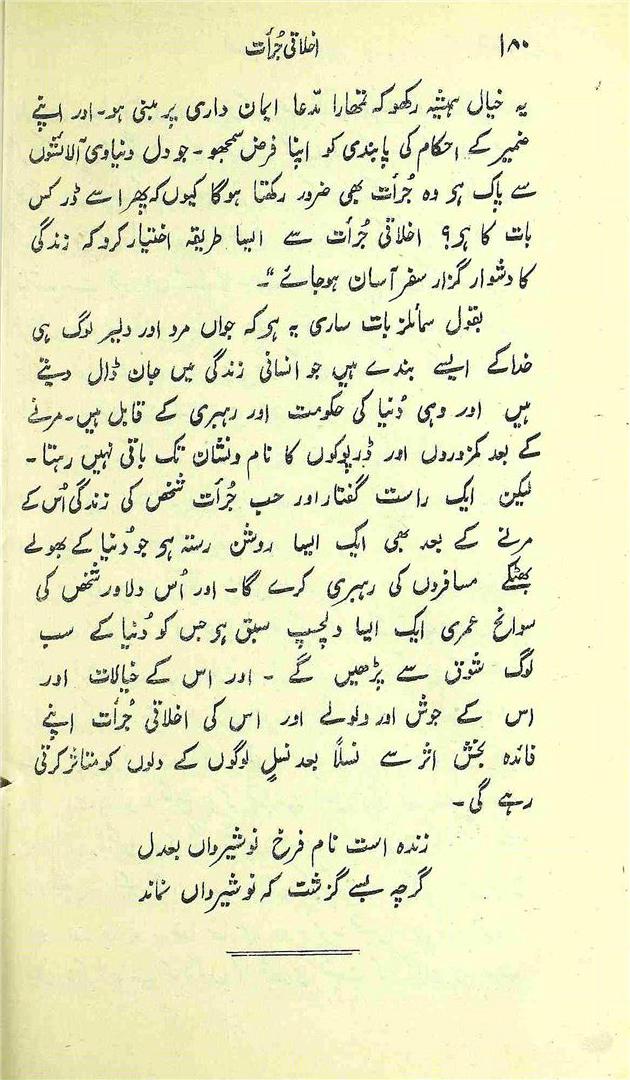 ۱۸۰
اخلاقی جُرأت
یہ خیال ہمیشہ رکھو کہ تمھارا مدّعا ایمان داری پر مبنی ہو۔ اور اپنے
ضمیر کے احکام کی پابندی کو اپنا فرض سمجھو۔ جو دل دنیاوی آلائشوں
سے پاک ہو وہ جُرأت بھی ضرور رکھتا ہوگا کیوں کہ پھر اسے ڈر کس
بات کا ہو؟ اخلاقی جُرأت سے ایسا طریقہ اختیار کرو کہ زندگی
کا دشوار گزار سفر آسان ہو جائے"۔
بقول سمائلز بات ساری یہ ہو کہ جواں مرد اور دلیر لوگ ہی
خدا کے ایسے بندے ہیں جو انسانی زندگی میں جان ڈال دیتے
ہیں اور وہی دُنیا کی حکومت اور رہبری کے قابل ہیں۔ مرنے
کے بعد کمزوروں اور ڈرپوکوں کا نام و نشان تک باقی نہیں رہتا۔
لیکن ایک راست گفتار اور حب جُرأت شخص کی زندگی اُس کے
مرنے کے بعد بھی ایک ایسا روشن رستہ ہو جو دُنیا کے بھولے
بھٹکے مسافروں کی رہبری کرے گا۔ اور اُس دلاور شخص کی
سوانح عمری ایک ایسا دلچسپ سبق ہو جس کو دُنیا کے سب
لوگ شوق سے پڑھیں گے ۔ اور اس کے خیالات اور
اس کے جوش اور ولولے اور اس کی اخلاقی جُرأت اپنے
فائدہ بخش اثر سے نسلاً بعد نسلٍ لوگوں کے دلوں کو متاثر کرتی
رہے گی۔
زندہ است نام فرخ نوشیرواں بعدل
گرچہ بسے گزشت کہ نوشیرواں نماند